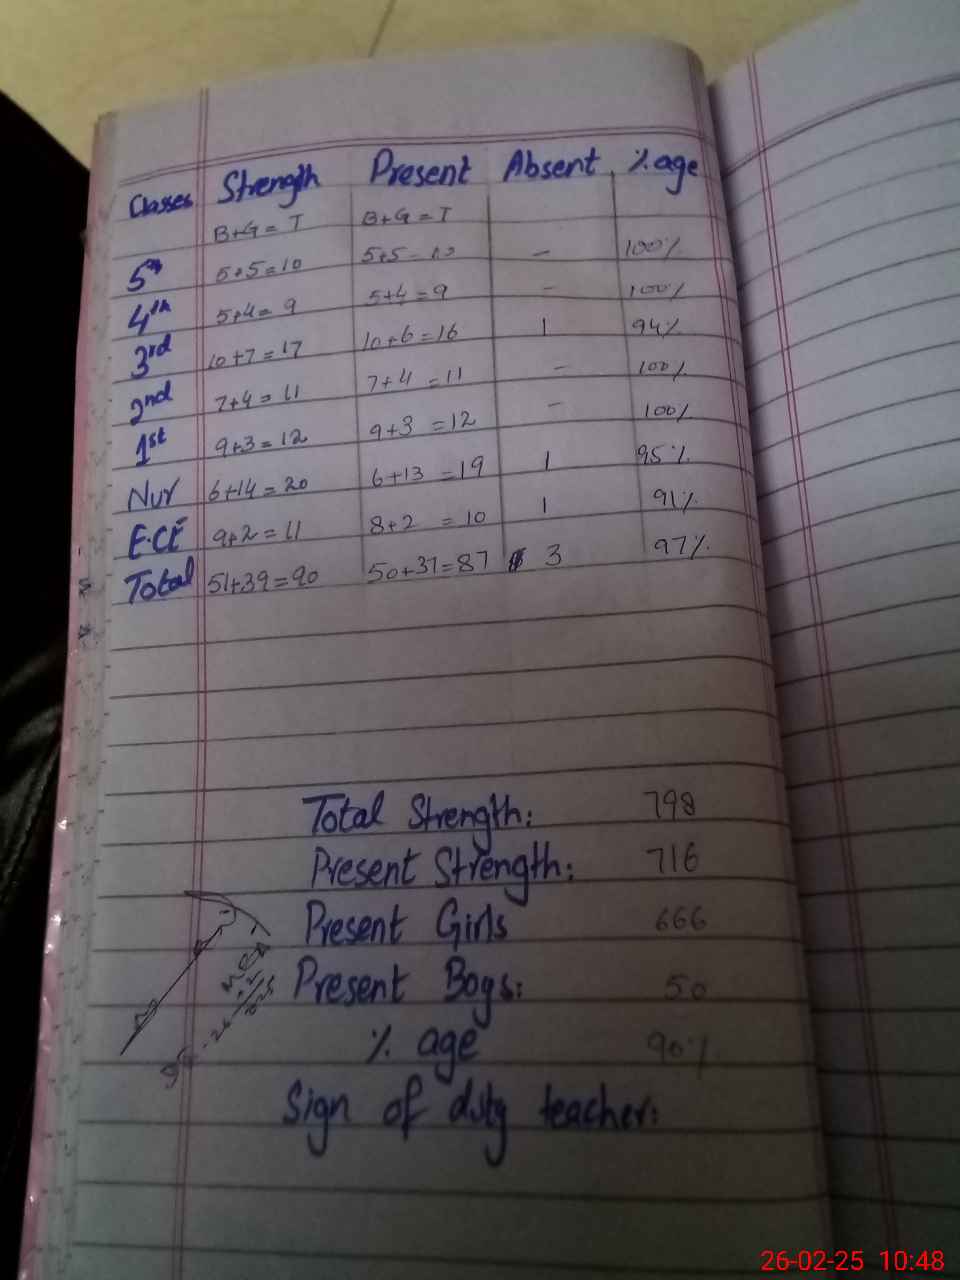 Classes Strength Present Absent %age
B+G=T B+G=T
5th 5+5=10 5+5=10 — 100%
4th 5+4=9 5+4=9 — 100%
3rd 10+7=17 10+6=16 1 94%
2nd 7+4=11 7+4=11 — 100%
1st 9+3=12 9+3=12 — 100%
Nur 6+14=20 6+13=19 1 95%
E.C.E 9+2=11 8+2=10 1 91%
Total 51+39=90 50+37=87 3 97%
Total Strength: 798
Present Strength: 716
Present Girls 666
Present Boys: 50
% age 90%
Sign of duty teacher:
26-02-25 10:48